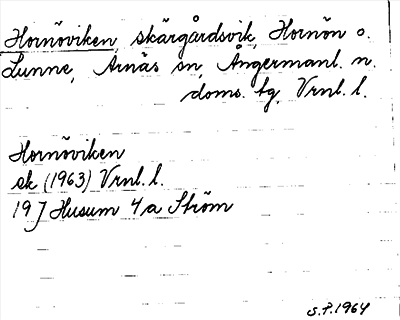 Hornöviken, skärgårdsvik, Hornön o.
Lunne, Arnäs sn, Ångermanl. n.
doms. tg, Vrnl. l.
Hornöviken
sk (1963) Vrnl. l.
19 J Husum 4a Ström
S.P. 1964